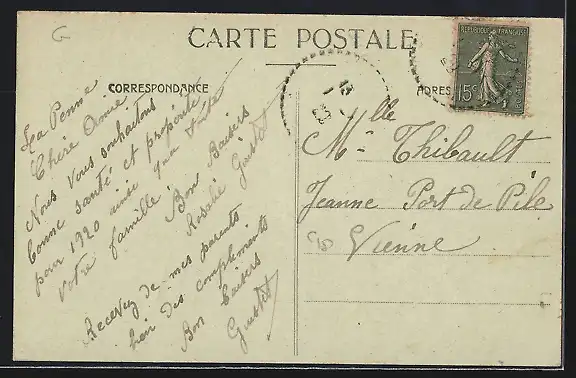 G
CARTE POSTALE
CORRESPONDANCE
ADRES
REPUBLIQUE FRANÇAISE
15c
La Penne
Chère Amie
Nous vous souhaitons
bonne santé et propérité
pour 1920 ainsi que toute
votre famille
Bon Baisers
Rosalie Gustet
Recevez de mes parents
bien des compliments
Bon baisers
Gustet
Mlle Thibault
Jeanne Port de Pile
Vienne